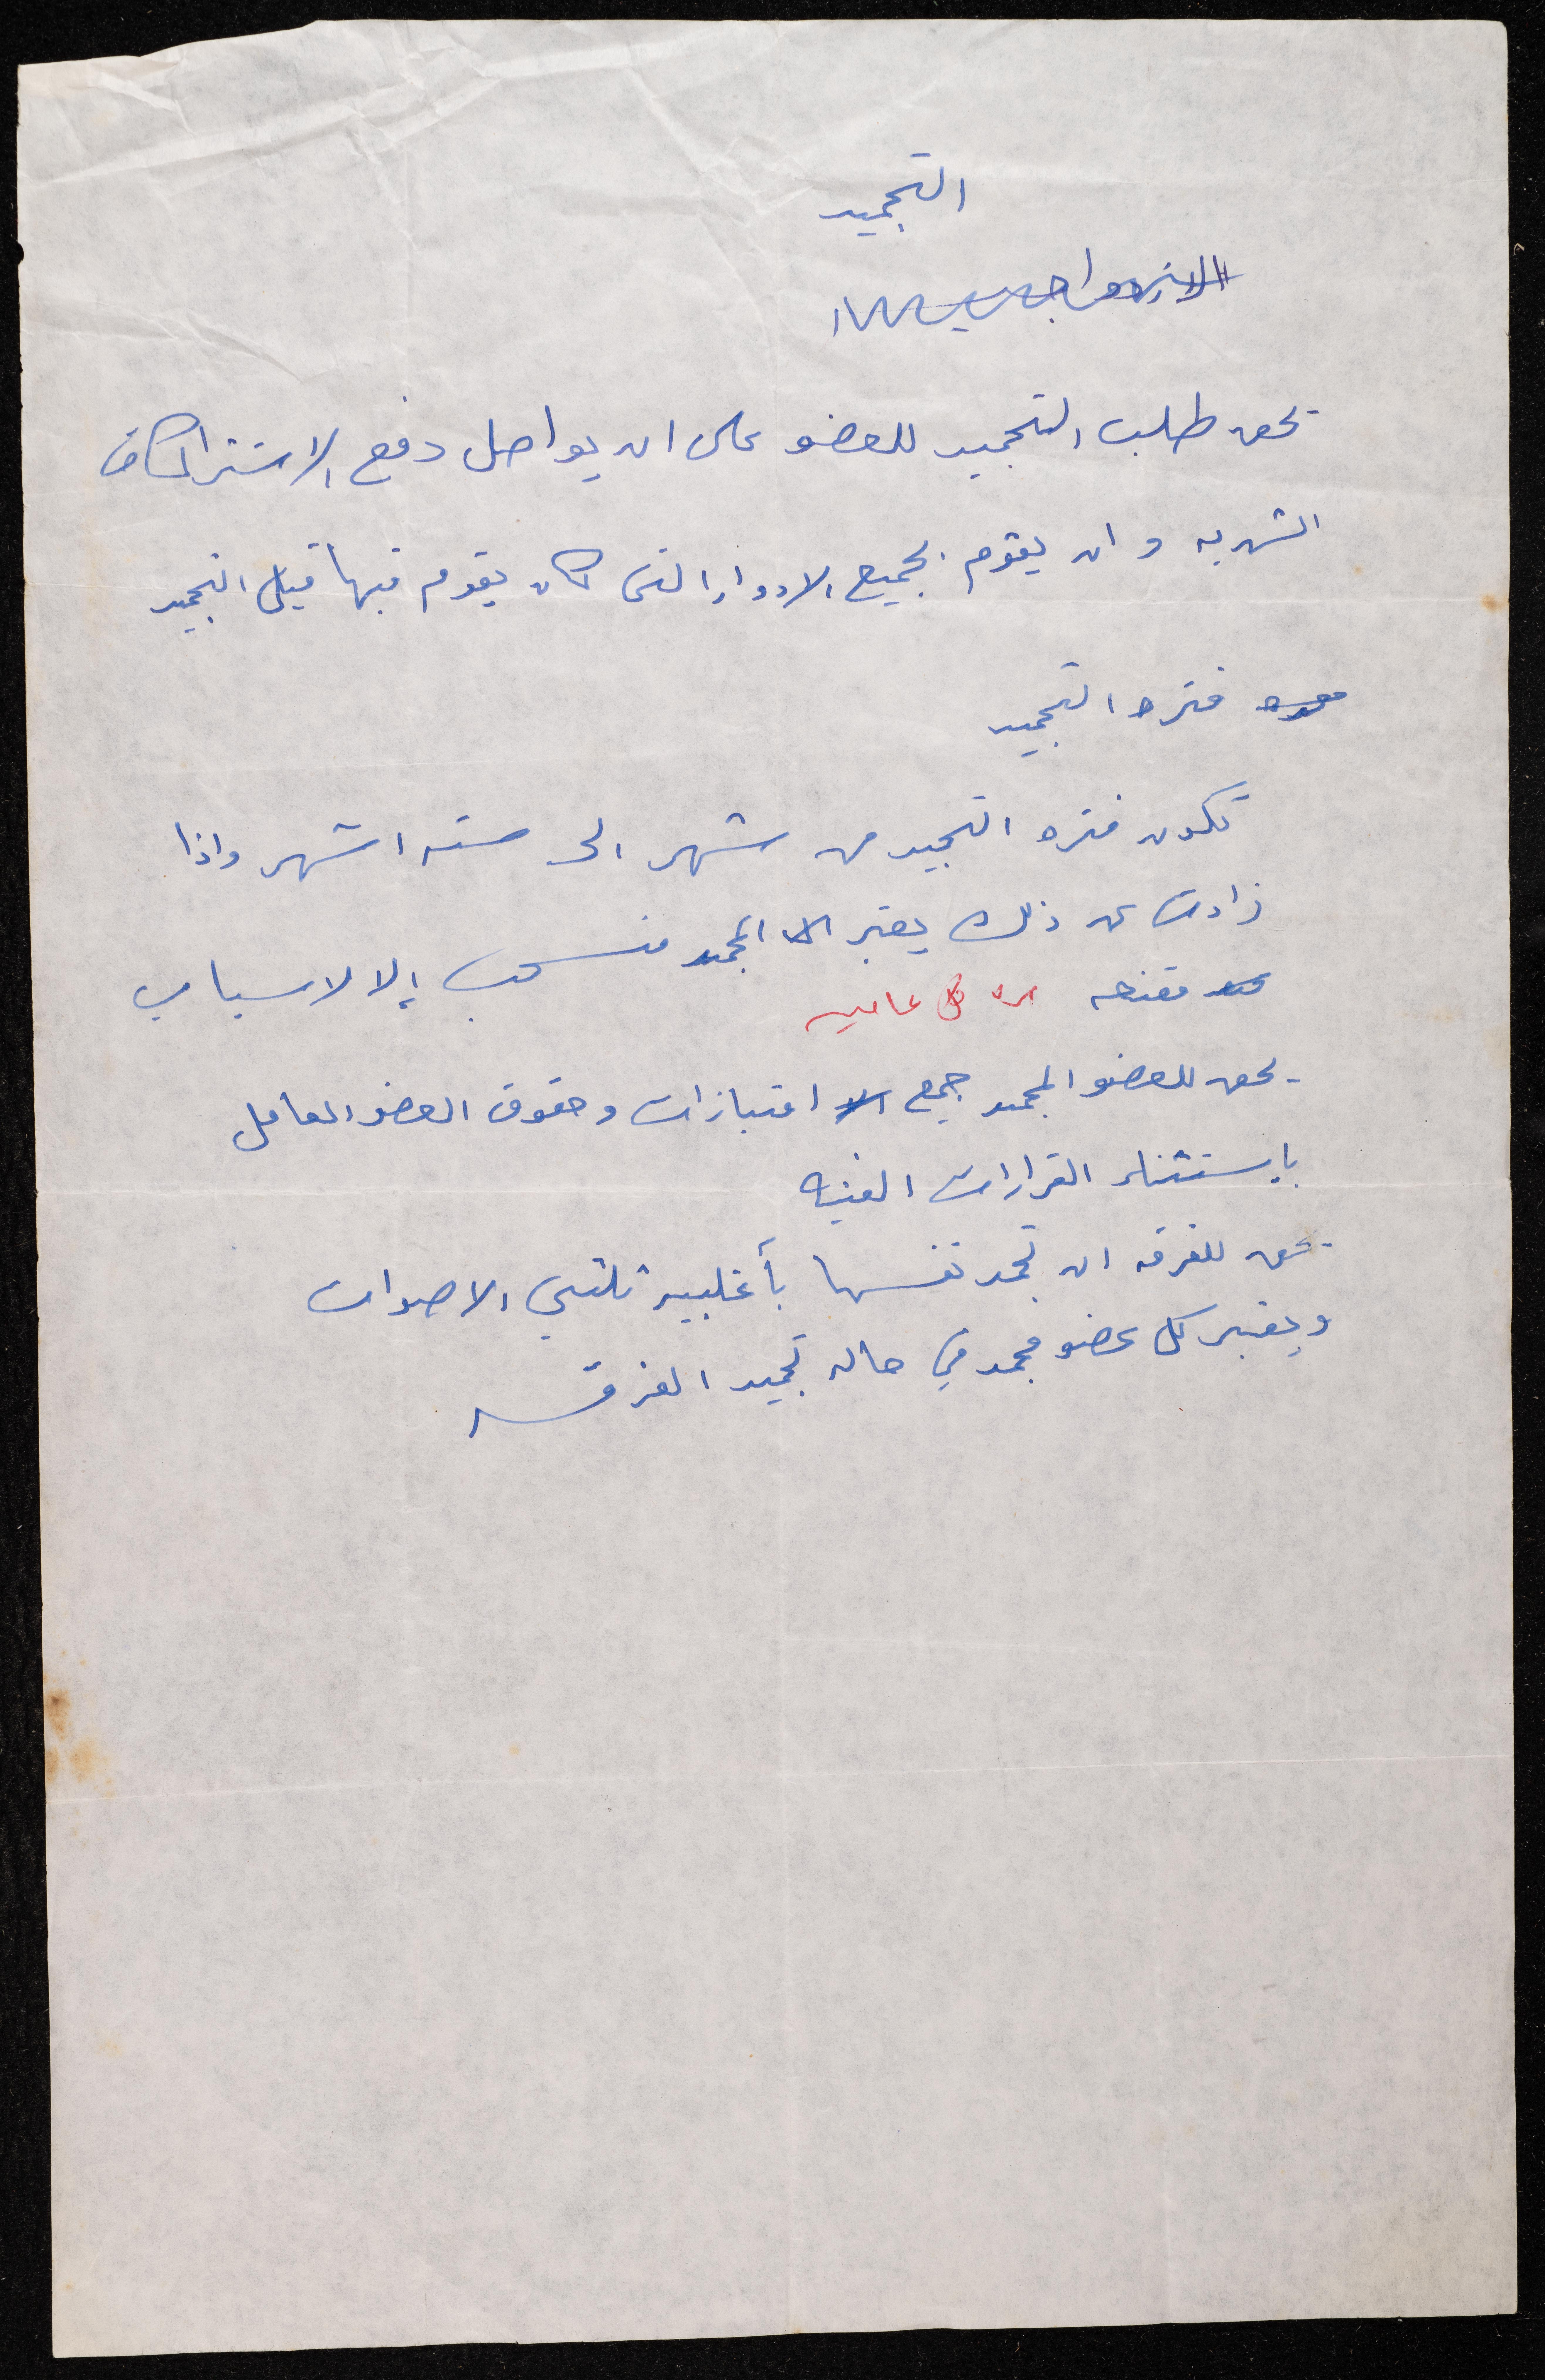 التجميد
يحق طلب التجميد للعضو على ان يواصل دفع الاشتراكات
الشهريه و ان يقوم بجميع الادوار التى كان يقوم فيها قبل التجميد
فتره التجميد
تكون فتره التجميد من شهر الى سته اشهر واذا
زادت عن ذلك يعتبر المجمد منسحب إلا لاسباب
مقنعه مره كل عامين
- يحق للعضو المجمد جميع امتيازات وحقوق العضو العامل
بإستثناء القرارات الفنيه
- يحق للفرقه ان تجمد نفسها بأغلبيه ثلثي الاصوات
ويعتبر كل عضو مجمد في حاله تجميد الفرقه